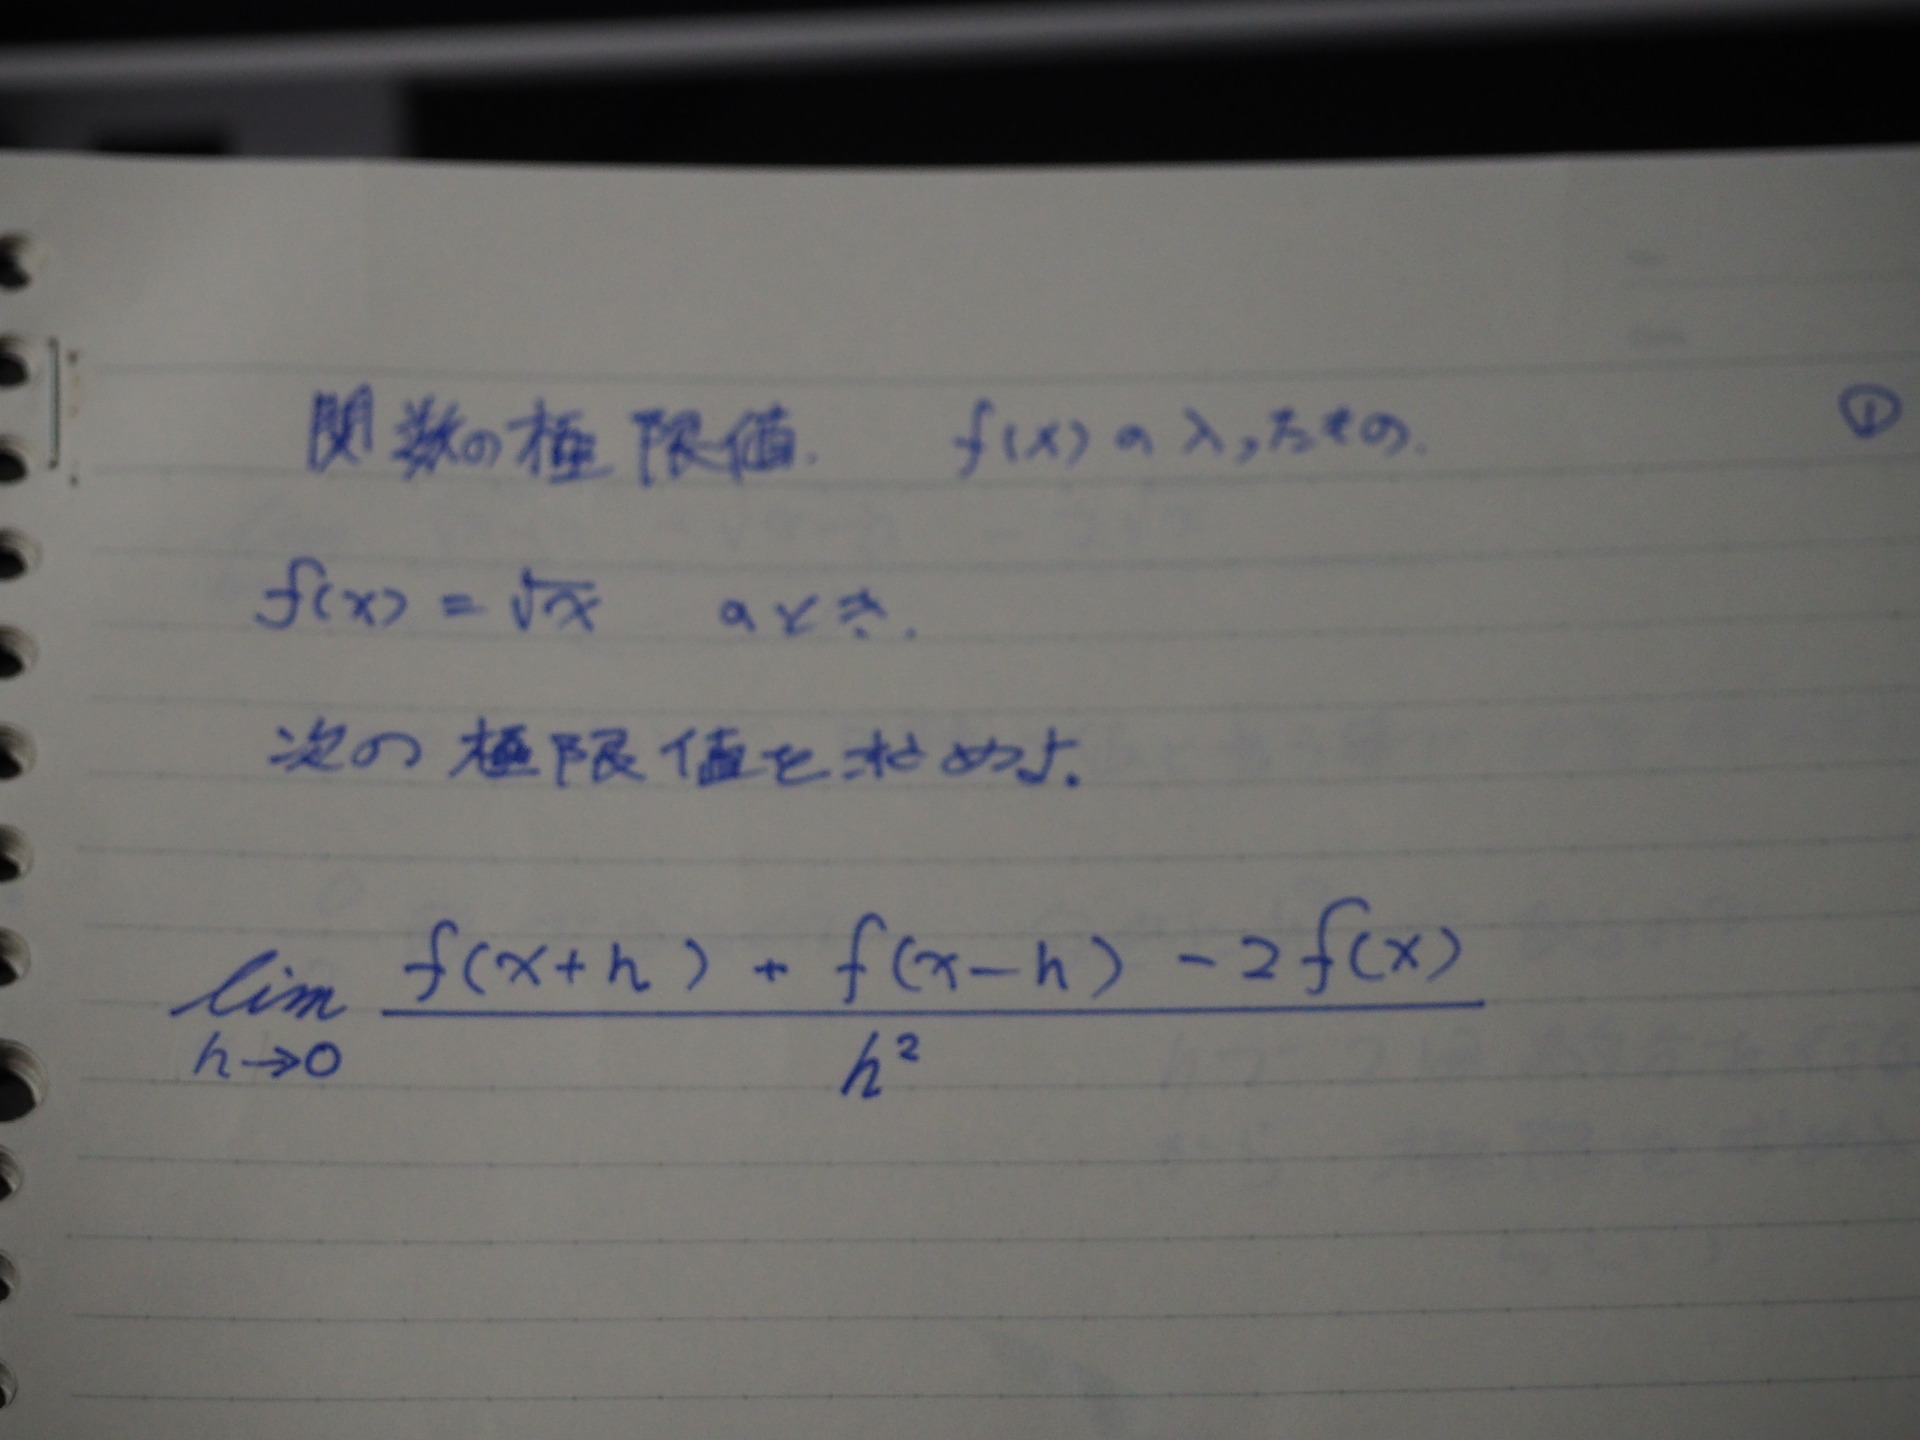 関数の極限値. f(x)の入ったもの. ①
f(x) = √x のとき.
次の極限値を求めよ.
lim f(x+h) + f(x-h) - 2f(x)
h→0 h²